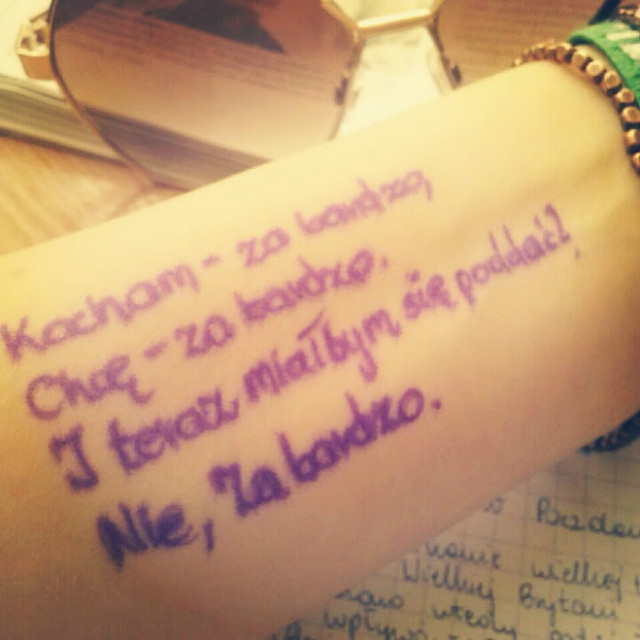 Kocham - za bardzo,
Chcę - za bardzo.
I teraz miałbym się poddać?
Nie, Za bardzo.
wielkiej
Wielkiej Brytani
wtedy